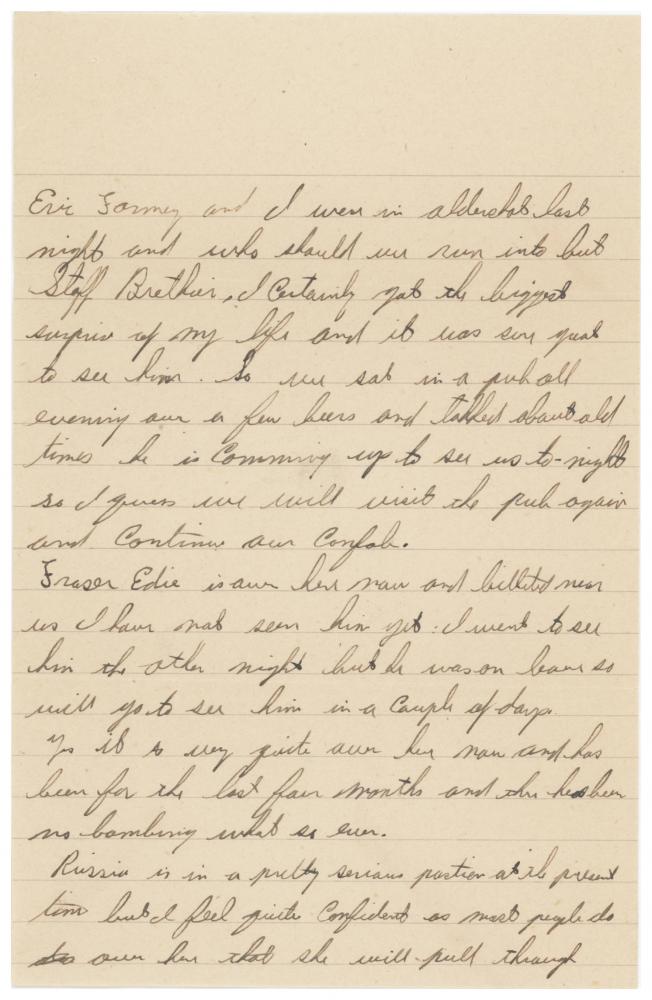 Eric Formey and I were in aldershot last
night and who should we run into but
Staff Brethier, I Certainly got the biggest
surprise of my life and it was sure great
to see him. So we sat in a pub all
evening over a few beers and talked about old
times he is Comming up to see us to-night
so I guess we will visit the pub again
and Continue our Confab.
Fraser Edie is over here now and billeted near
us I have not seen him yet: I went to see
him the other night but he was on leave so
will go to see him in a Couple of days.
Yes it is very quite over here now and has
been for the last four months and there has been
no bombing what so ever.
Russia is in a pretty serious postion at the present
time but I feel quite Confident as most people do
over here that she will pull through